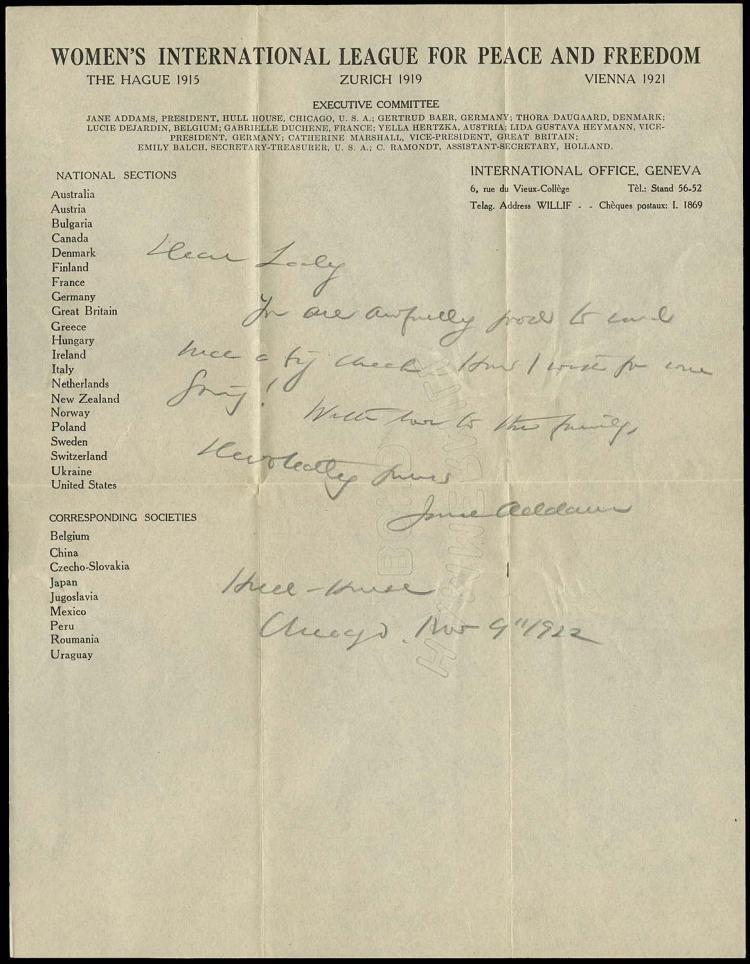 WOMEN'S INTERNATIONAL LEAGUE FOR PEACE AND FREEDOM
THE HAGUE 1915 ZURICH 1919 VIENNA 1921
EXECUTIVE COMMITTEE
JANE ADDAMS, PRESIDENT, HULL HOUSE, CHICAGO, U. S. A.; GERTRUD BAER, GERMANY; THORA DAUGAARD, DENMARK;
LUCIE DEJARDIN, BELGIUM; GABRIELLE DUCHENE, FRANCE; YELLA HERTZKA, AUSTRIA; LIDA GUSTAVA HEYMANN, VICE-
PRESIDENT, GERMANY; CATHERINE MARSHALL, VICE-PRESIDENT, GREAT BRITAIN;
EMILY BALCH, SECRETARY-TREASURER, U. S. A.; C. RAMONDT, ASSISTANT-SECRETARY, HOLLAND.
INTERNATIONAL OFFICE, GENEVA
6, rue du Vieux-Collège Tèl.: Stand 56-52
Telag. Address WILLIF - - Chèques postaux: I. 1869
NATIONAL SECTIONS
Australia
Austria
Bulgaria
Canada
Denmark
Finland
France
Germany
Great Britain
Greece
Hungary
Ireland
Italy
Netherlands
New Zealand
Norway
Poland
Sweden
Switzerland
Ukraine
United States
CORRESPONDING SOCIETIES
Belgium
China
Czecho-Slovakia
Japan
Jugoslavia
Mexico
Peru
Roumania
Uraguay
Dear Lady
You are awfully good to send
such a big check. How I wish for one
With love to the family,
Devotedly yours
Jane Addams
Hull-House
Chicago. Nov 9" 1922